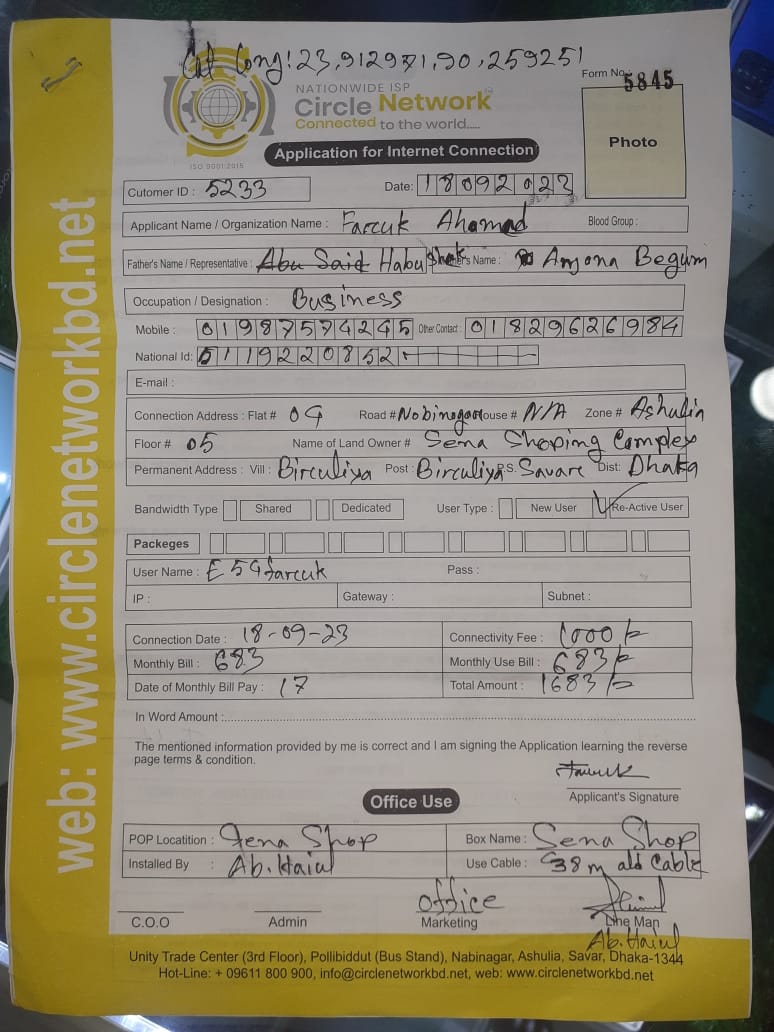 Lat Long: 23.912971, 90.259251
NATIONWIDE ISP
Circle Network
Connected to the world.....
ISO 9001:2015
Form No. 5845
Photo
Application for Internet Connection
Cutomer ID : 5233 Date: 18092023
Applicant Name / Organization Name : Farcuk Ahamad Blood Group :
Father's Name / Representative : Abu Said Habu Shek Name : Anjona Begum
Occupation / Designation : Business
Mobile : 01987574245 Other Contact : 01829626984
National Id: 5119220852
E-mail :
Connection Address : Flat # 04 Road # Nobinagar House # N/A Zone # Ashulia
Floor # 05 Name of Land Owner # Sena Shoping Complex
Permanent Address : Vill : Birculiya Post : Birculiya P.S. Savare Dist: Dhaka
Bandwidth Type Shared Dedicated User Type : New User Re-Active User
Packeges
User Name : E54farcuk Pass :
IP : Gateway : Subnet :
Connection Date : 18-09-23 Connectivity Fee : 1000/=
Monthly Bill : 683 Monthly Use Bill : 683/=
Date of Monthly Bill Pay : 17 Total Amount : 1683/=
In Word Amount :
The mentioned information provided by me is correct and I am signing the Application learning the reverse
page terms & condition.
Applicant's Signature
Office Use
POP Locatition : Sena Shop Box Name : Sena Shop
Installed By : Ab. Haiul Use Cable : 38m old Cable
office
C.O.O Admin Marketing Line Man
Ab. Haiul
Unity Trade Center (3rd Floor), Pollibiddut (Bus Stand), Nabinagar, Ashulia, Savar, Dhaka-1344
Hot-Line: + 09611 800 900, info@circlenetworkbd.net, web: www.circlenetworkbd.net
web: www.circlenetworkbd.net